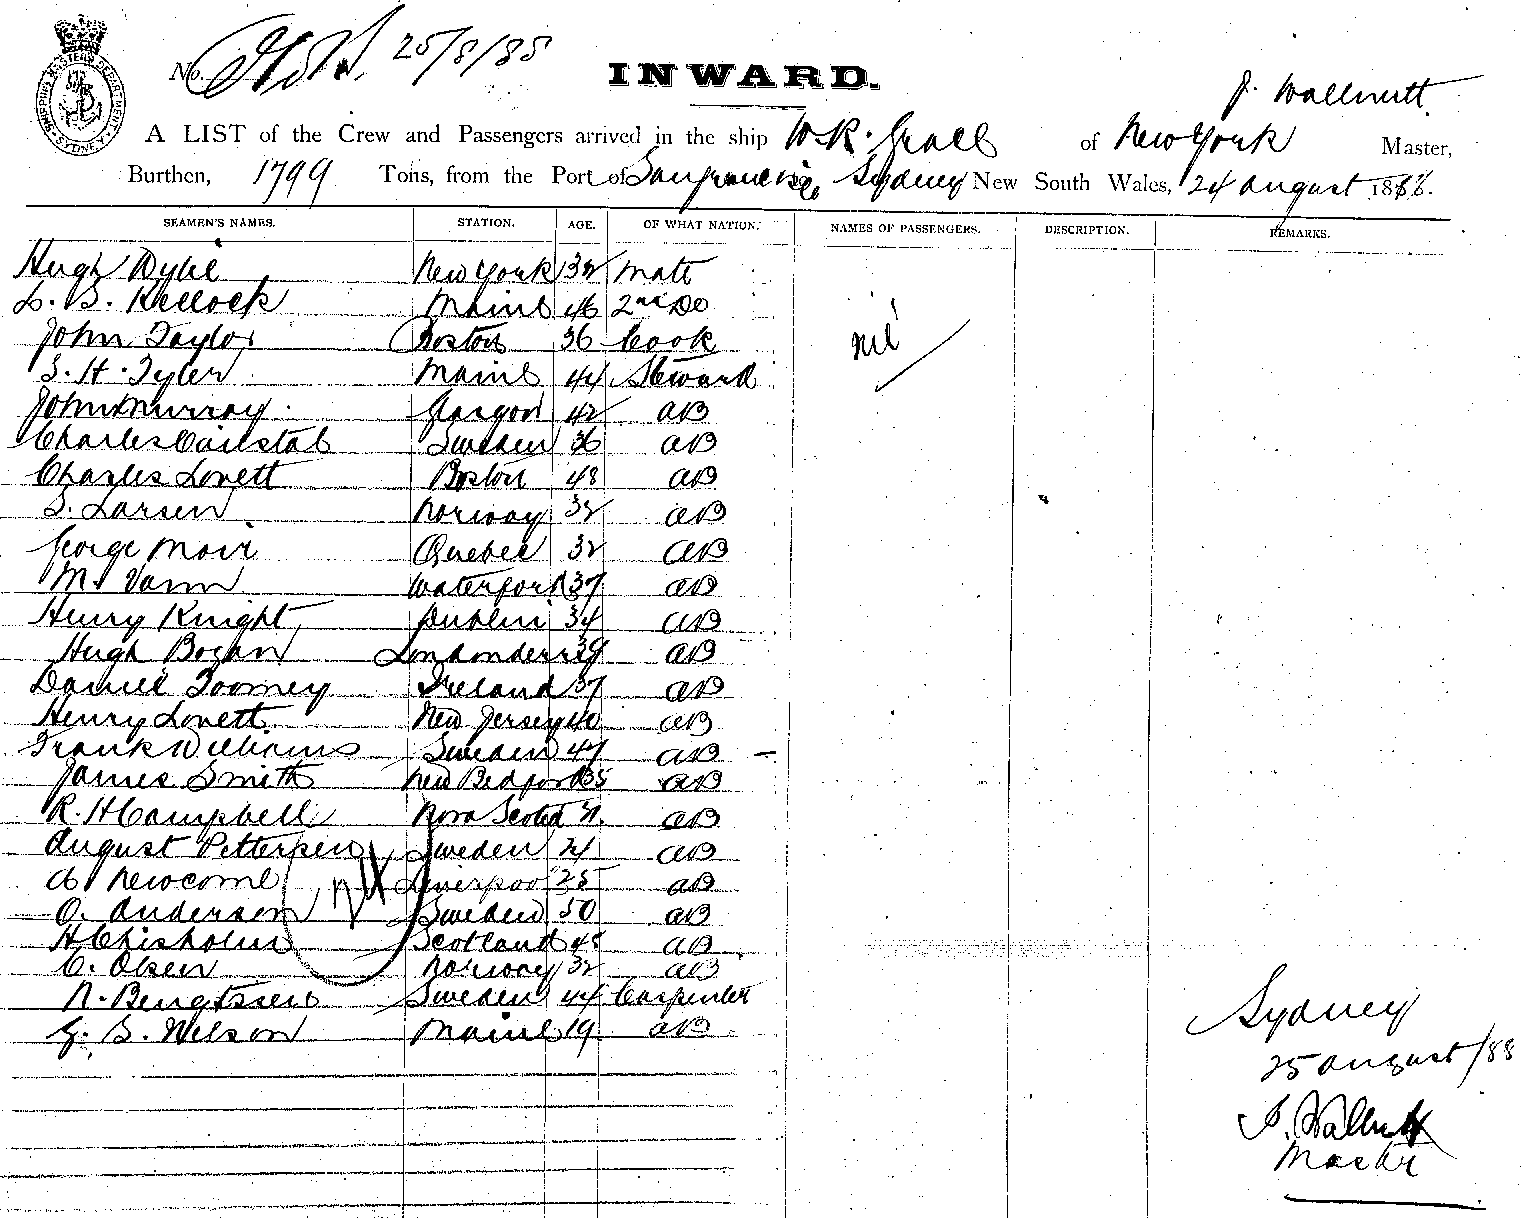 SHIPPING MASTERS DEPARTMENT SYDNEY
No. 25/8/88
INWARD.
J. Wallnutt
A LIST of the Crew and Passengers arrived in the ship W.R. Grace of New York Master,
Burthen, 1799 Tons, from the Port of Sanfrancisco Sydney New South Wales, 24 August 188
SEAMEN'S NAMES. STATION. AGE. OF WHAT NATION. NAMES OF PASSENGERS. DESCRIPTION. REMARKS.
Hugh New York 32 Mate
Kellock Maine 46 2nd Do
John Taylor Boston 36 Cook nil
S. H. Tyler Maine 44 Steward
John Murray Glasgow 42 AB
Charles Sweden 36 AB
Charles Lovett Boston 48 AB
S. Larsen Norway 32 AB
George Moir Quebec 32 AB
M. Vann Waterford 37 AB
Henry Knight Dublin 34 AB
Hugh Bogan Londonderry 39 AB
Daniel Toomey Ireland 37 AB
Henry Lovett New Jersey 40 AB
Frank Williams Sweden 47 AB
James Smith New Bedford 35 AB
R. H Campbell Nova Scotia AB
August Pettersen Sweden 21 AB
A Newcome Liverpool 25 AB
O. Anderson Sweden 50 AB
H Chisholm Scotland 45 AB
C. Olsen Norway 32 AB
N. Bengtssen Sweden 44 Carpenter
G. S. Wilson Maine 19 AB
Sydney
25 August /88
J. Wallnutt
Master